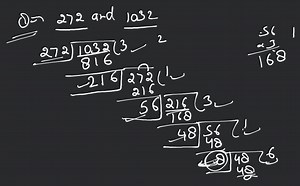 272 and 1032
272 1032 ( 3 2
816
216 272 ( 1
216
56 216 ( 3
168
48 56 ( 1
48
8 48 ( 6
48
56 1
×3
168